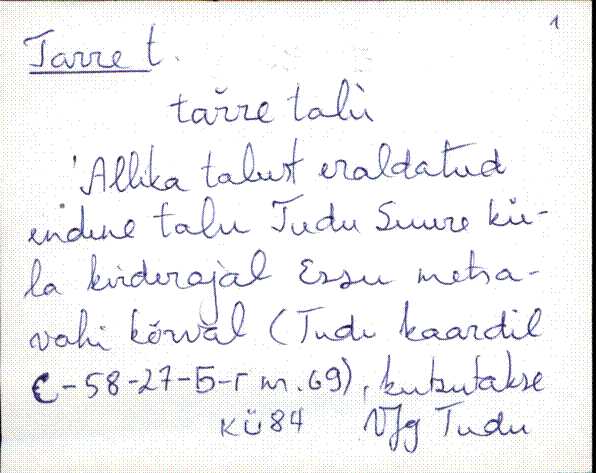 1
Tarre t.
tar̆re talu̇
'Allika talust eraldatud
endine talu Tudu Suure kü-
la kirderajal Essu metsa-
vahi kõrval (Tudu kaardil
C-58-27-Б-г nr. 69), kutsutakse
KÜ84 VJg Tudu